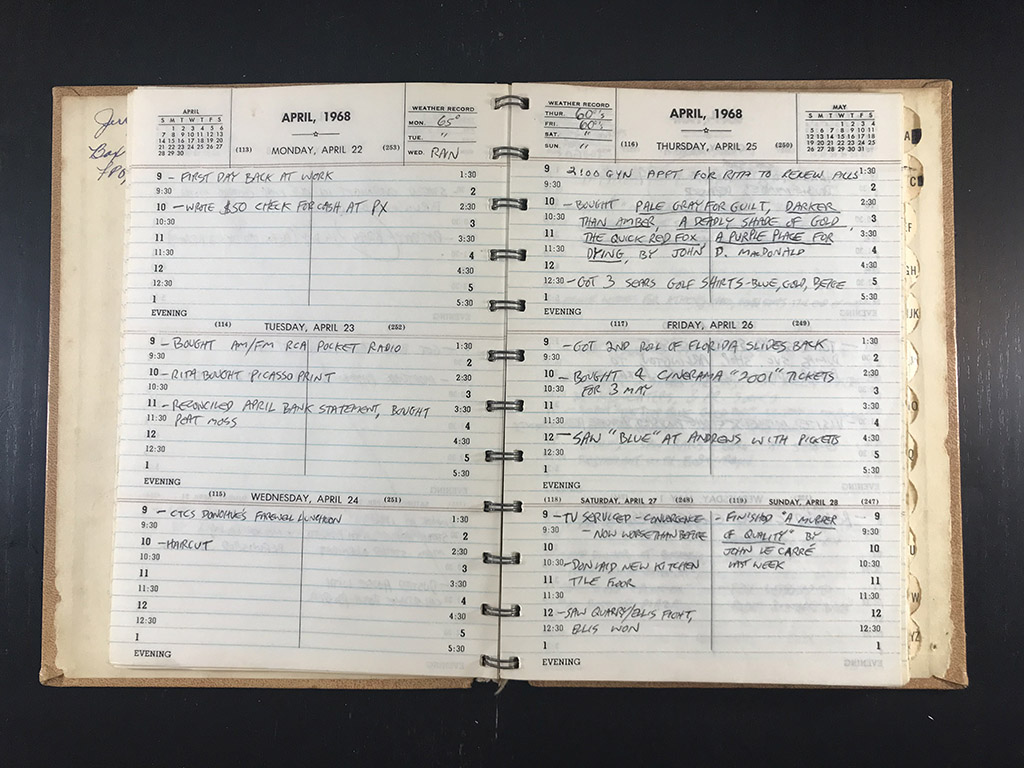 APRIL
S M T W T F S
1 2 3 4 5 6
7 8 9 10 11 12 13
14 15 16 17 18 19 20
21 22 23 24 25 26 27
28 29 30
APRIL, 1968
WEATHER RECORD
MON. 65°
TUE. "
WED. RAN
(113) MONDAY, APRIL 22 (253)
9 - FIRST DAY BACK AT WORK 1:30
9:30 2
10 - WROTE $50 CHECK FOR CASH AT PX 2:30
10:30 3
11 3:30
11:30 4
12 4:30
12:30 5
1 5:30
EVENING
(114) TUESDAY, APRIL 23 (252)
9 - BOUGHT AM/FM RCA POCKET RADIO 1:30
9:30 2
10 - RITA BOUGHT PICASSO PRINT 2:30
10:30 3
11 - RECONCILED APRIL BANK STATEMENT, BOUGHT 3:30
11:30 PEAT MOSS 4
12 4:30
12:30 5
1 5:30
EVENING
(115) WEDNESDAY, APRIL 24 (251)
9 - CTCS DONOHUE'S FAREWELL LUNCHEON 1:30
9:30 2
10 - HAIRCUT 2:30
10:30 3
11 3:30
11:30 4
12 4:30
12:30 5
1 5:30
EVENING
WEATHER RECORD
THUR. 60°'s
FRI. 60°'s
SAT. "
SUN. "
APRIL, 1968
MAY
S M T W T F S
1 2 3 4
5 6 7 8 9 10 11
12 13 14 15 16 17 18
19 20 21 22 23 24 25
26 27 28 29 30 31
(116) THURSDAY, APRIL 25 (250)
9 2:00 GYN APPT FOR RITA TO RENEW PILLS 1:30
9:30 2
10 - BOUGHT PALE GRAY FOR GUILT, DARKER 2:30
10:30 THAN AMBER, A DEADLY SHADE OF GOLD, 3
11 THE QUICK RED FOX, A PURPLE PLACE FOR 3:30
11:30 DYING, BY JOHN D. MACDONALD 4
12 4:30
12:30 - GOT 3 SEARS GOLF SHIRTS - BLUE, GOLD, BEIGE 5
1 5:30
EVENING
(117) FRIDAY, APRIL 26 (249)
9 - GOT 2ND ROLL OF FLORIDA SLIDES BACK 1:30
9:30 2
10 - BOUGHT 4 CINERAMA "2001" TICKETS 2:30
10:30 FOR 3 MAY 3
11 3:30
11:30 4
12 - SAW "BLUE" AT ANDREWS WITH PICKETS 4:30
12:30 5
1 5:30
EVENING
(118) SATURDAY, APRIL 27 (248)
9 - TV SERVICED - CONVERGENCE
9:30 - NOW WORSE THAN BEFORE
10
10:30 - DON LAID NEW KITCHEN
11 TILE FLOOR
11:30
12 - SAW QUARRY/ELLIS FIGHT,
12:30 ELLIS WON
1
EVENING
(119) SUNDAY, APRIL 28 (247)
- FINISHED "A MURDER 9
OF QUALITY" BY 9:30
JOHN LE CARRÉ 10
LAST WEEK 10:30
11
11:30
12
12:30
1
A
C
GH
W
YZ